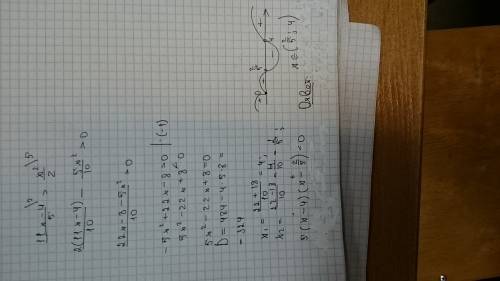 (11x-4)/5 \2 > x²/2 \5
2(11x-4)/10 - 5x²/10 > 0
(22x-8-5x²)/10 > 0
-5x²+22x-8=0 | ·(-1)
5x²-22x+8=0
5x²-22x+8=0
D=484-4·5·8=
=324
x₁ = (22+18)/10 = 4;
x₂ = (22-18)/10 = 4/10 = 2/5;
5(x-4)(x-2/5)=0
+ 2/5 - 4 +
Ответ: x∈(2/5; 4)